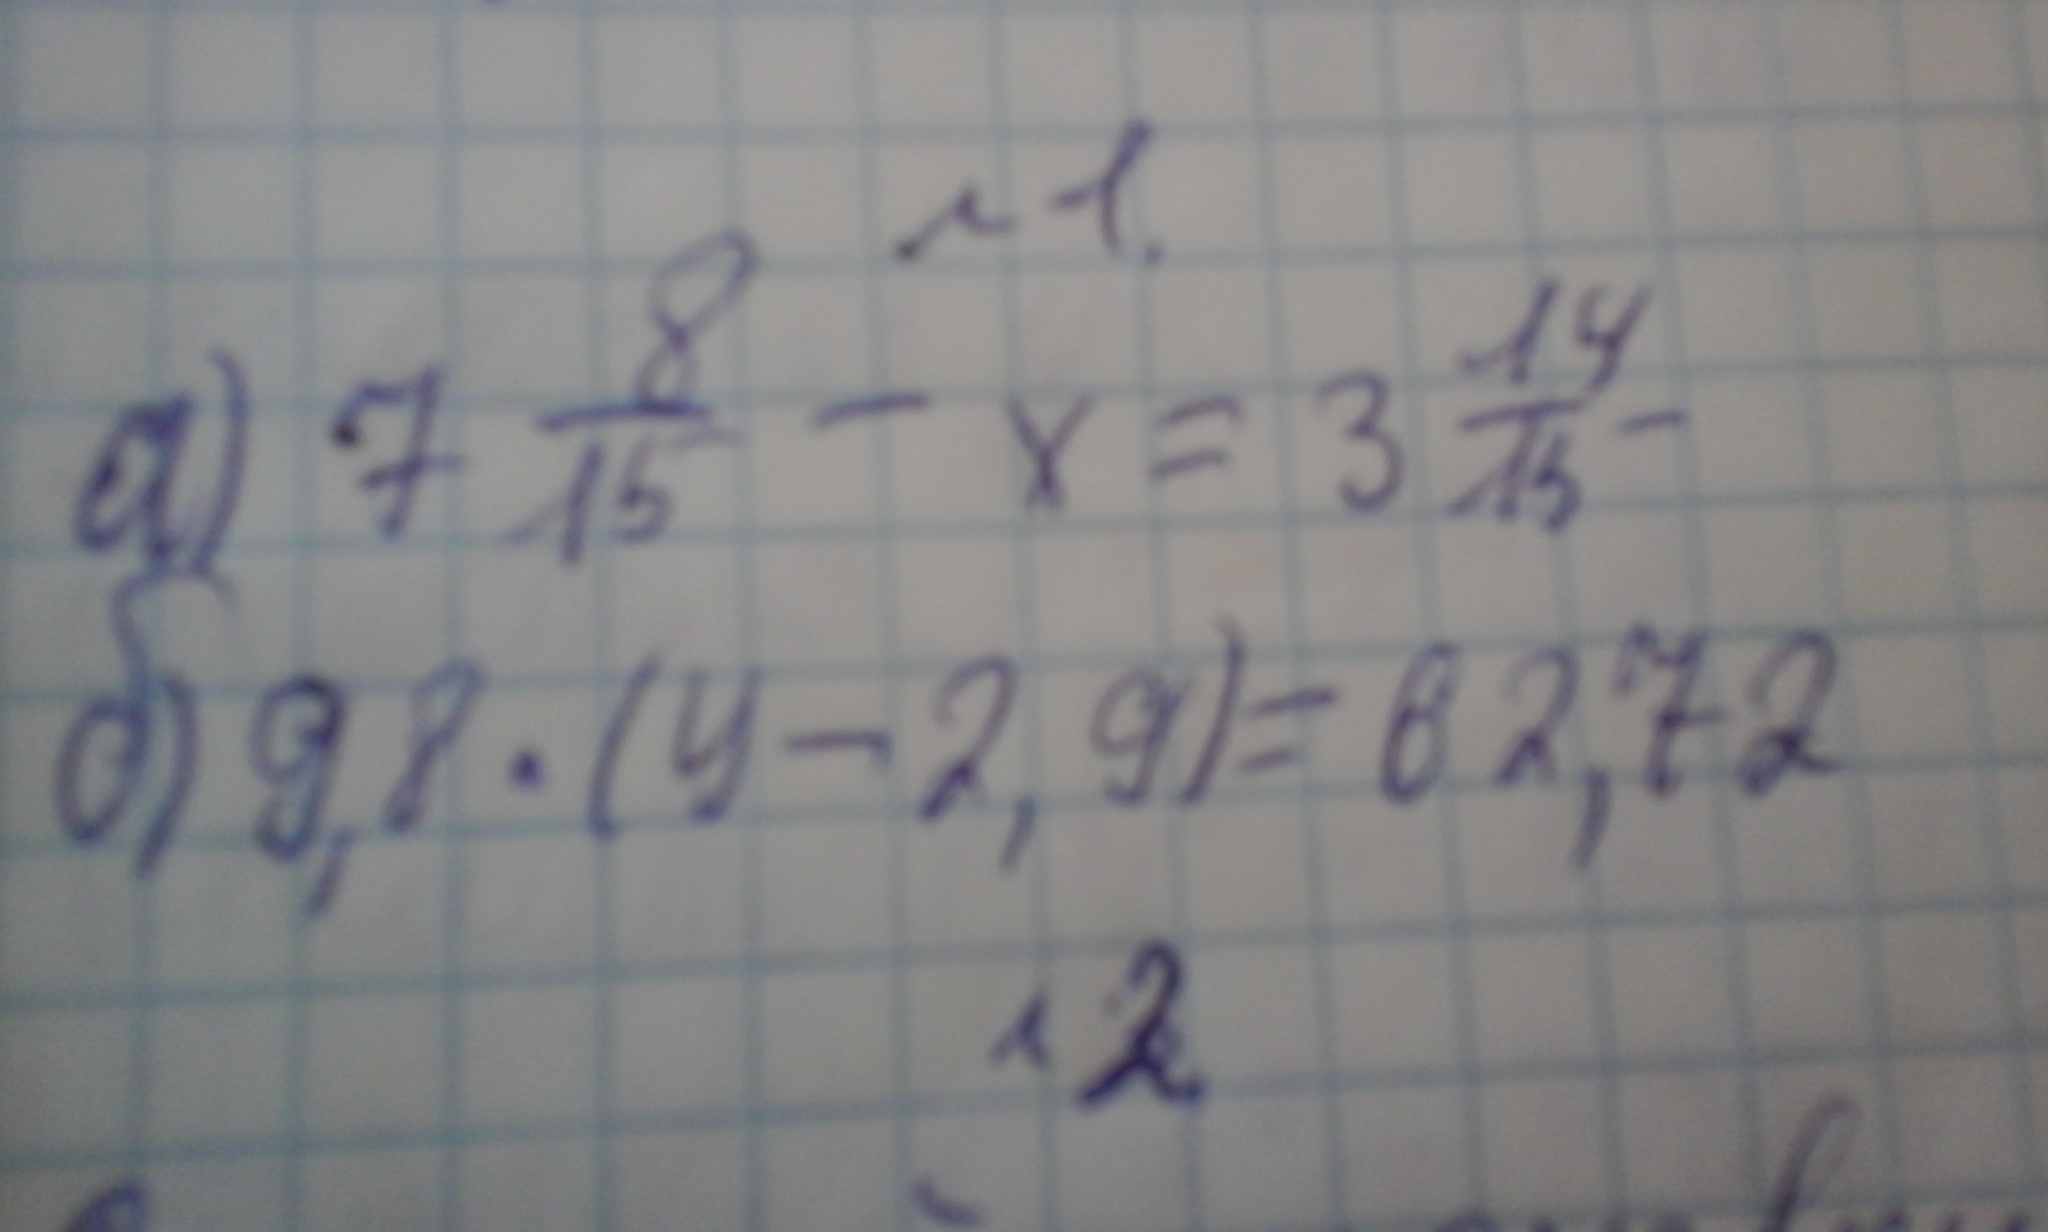 №1.
а) 7 8/15 - x = 3 14/15
б) 9,8 · (y - 2,9) = 62,72
№2.